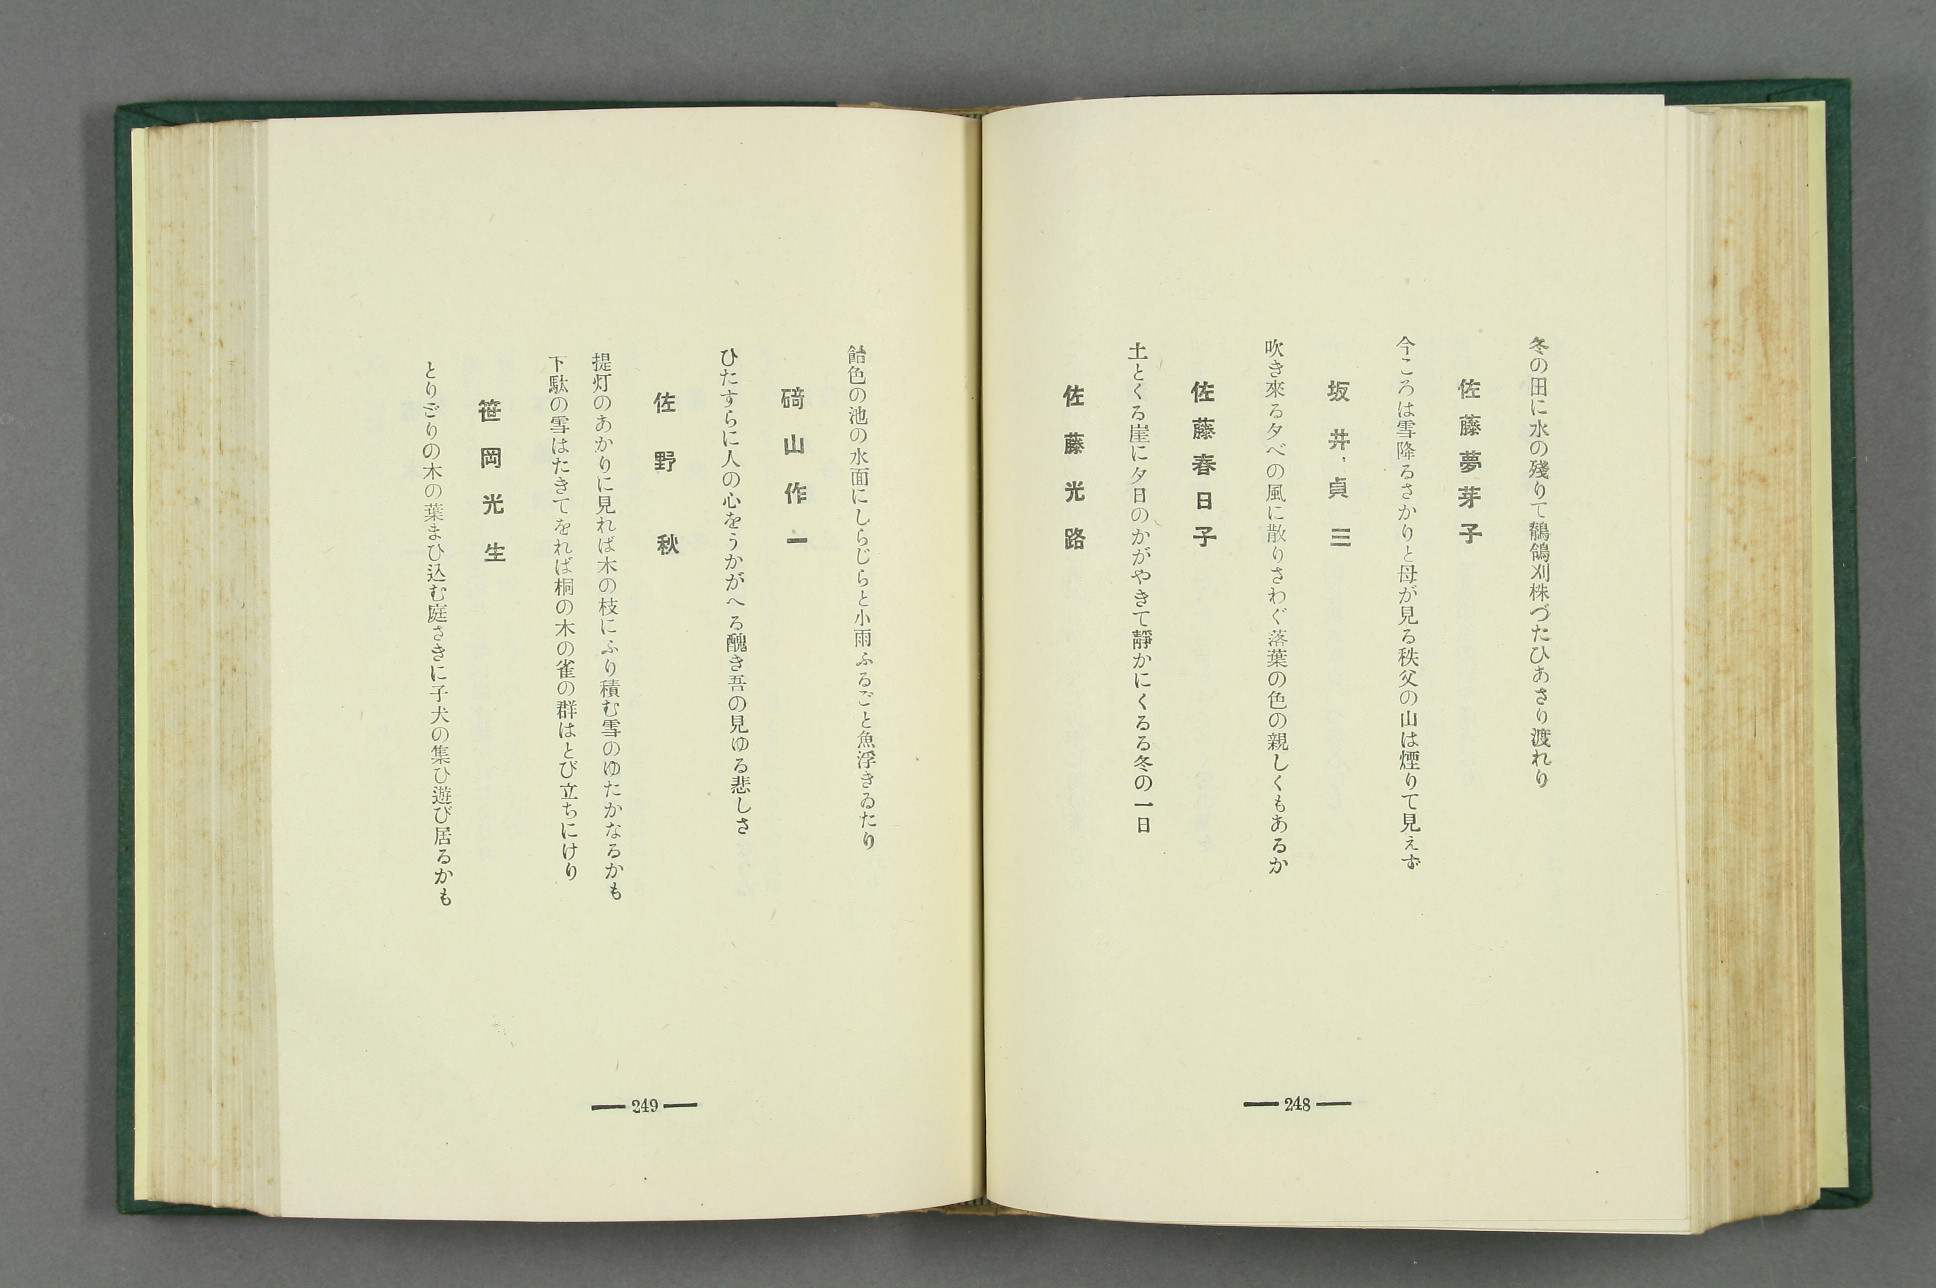 冬の田に水の殘りて鶺鴒刈株づたひあさり渡れり
佐藤夢芽子
今ころは雪降るさかりと母が見る秩父の山は煙りて見えず
坂井貞三
吹き來る夕べの風に散りさわぐ落葉の色の親しくもあるか
佐藤春日子
土とくる崖に夕日のかがやきて靜かにくるる冬の一日
佐藤光路
248
飴色の池の水面にしらじらと小雨ふるごと魚浮きゐたり
碕山作一
ひたすらに人の心をうかがへる醜き吾の見ゆる悲しさ
佐野秋
提灯のあかりに見れば木の枝にふり積む雪のゆたかなるかも
下駄の雪はたきてをれば桐の木の雀の群はとび立ちにけり
笹岡光生
とりどりの木の葉まひ込む庭さきに子犬の集ひ遊び居るかも
249